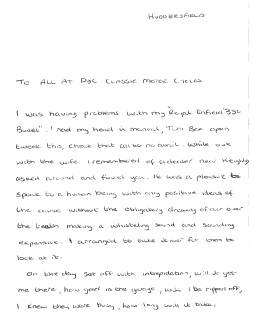 HUDDERSFIELD
TO ALL AT Classic Motor Cycles
I was having problems with my "Royal Enfield 350
Bullet". I had my head in manual,
tweak this, check that all to no avail. While out
with the wife I remembered of a dealer near Keighley
asked around and found you. It was a pleasure to
speak to a human being with only positive ideas of
the cause without the obligatory drawing of air over
the teeth making a whistling sound and sounding
expensive. I arranged to take it over for them to
look at it.
On the day set off with intrepidation, will it get
me there, how good is the garage, will I be ripped off,
I knew they were busy, how long will it take.